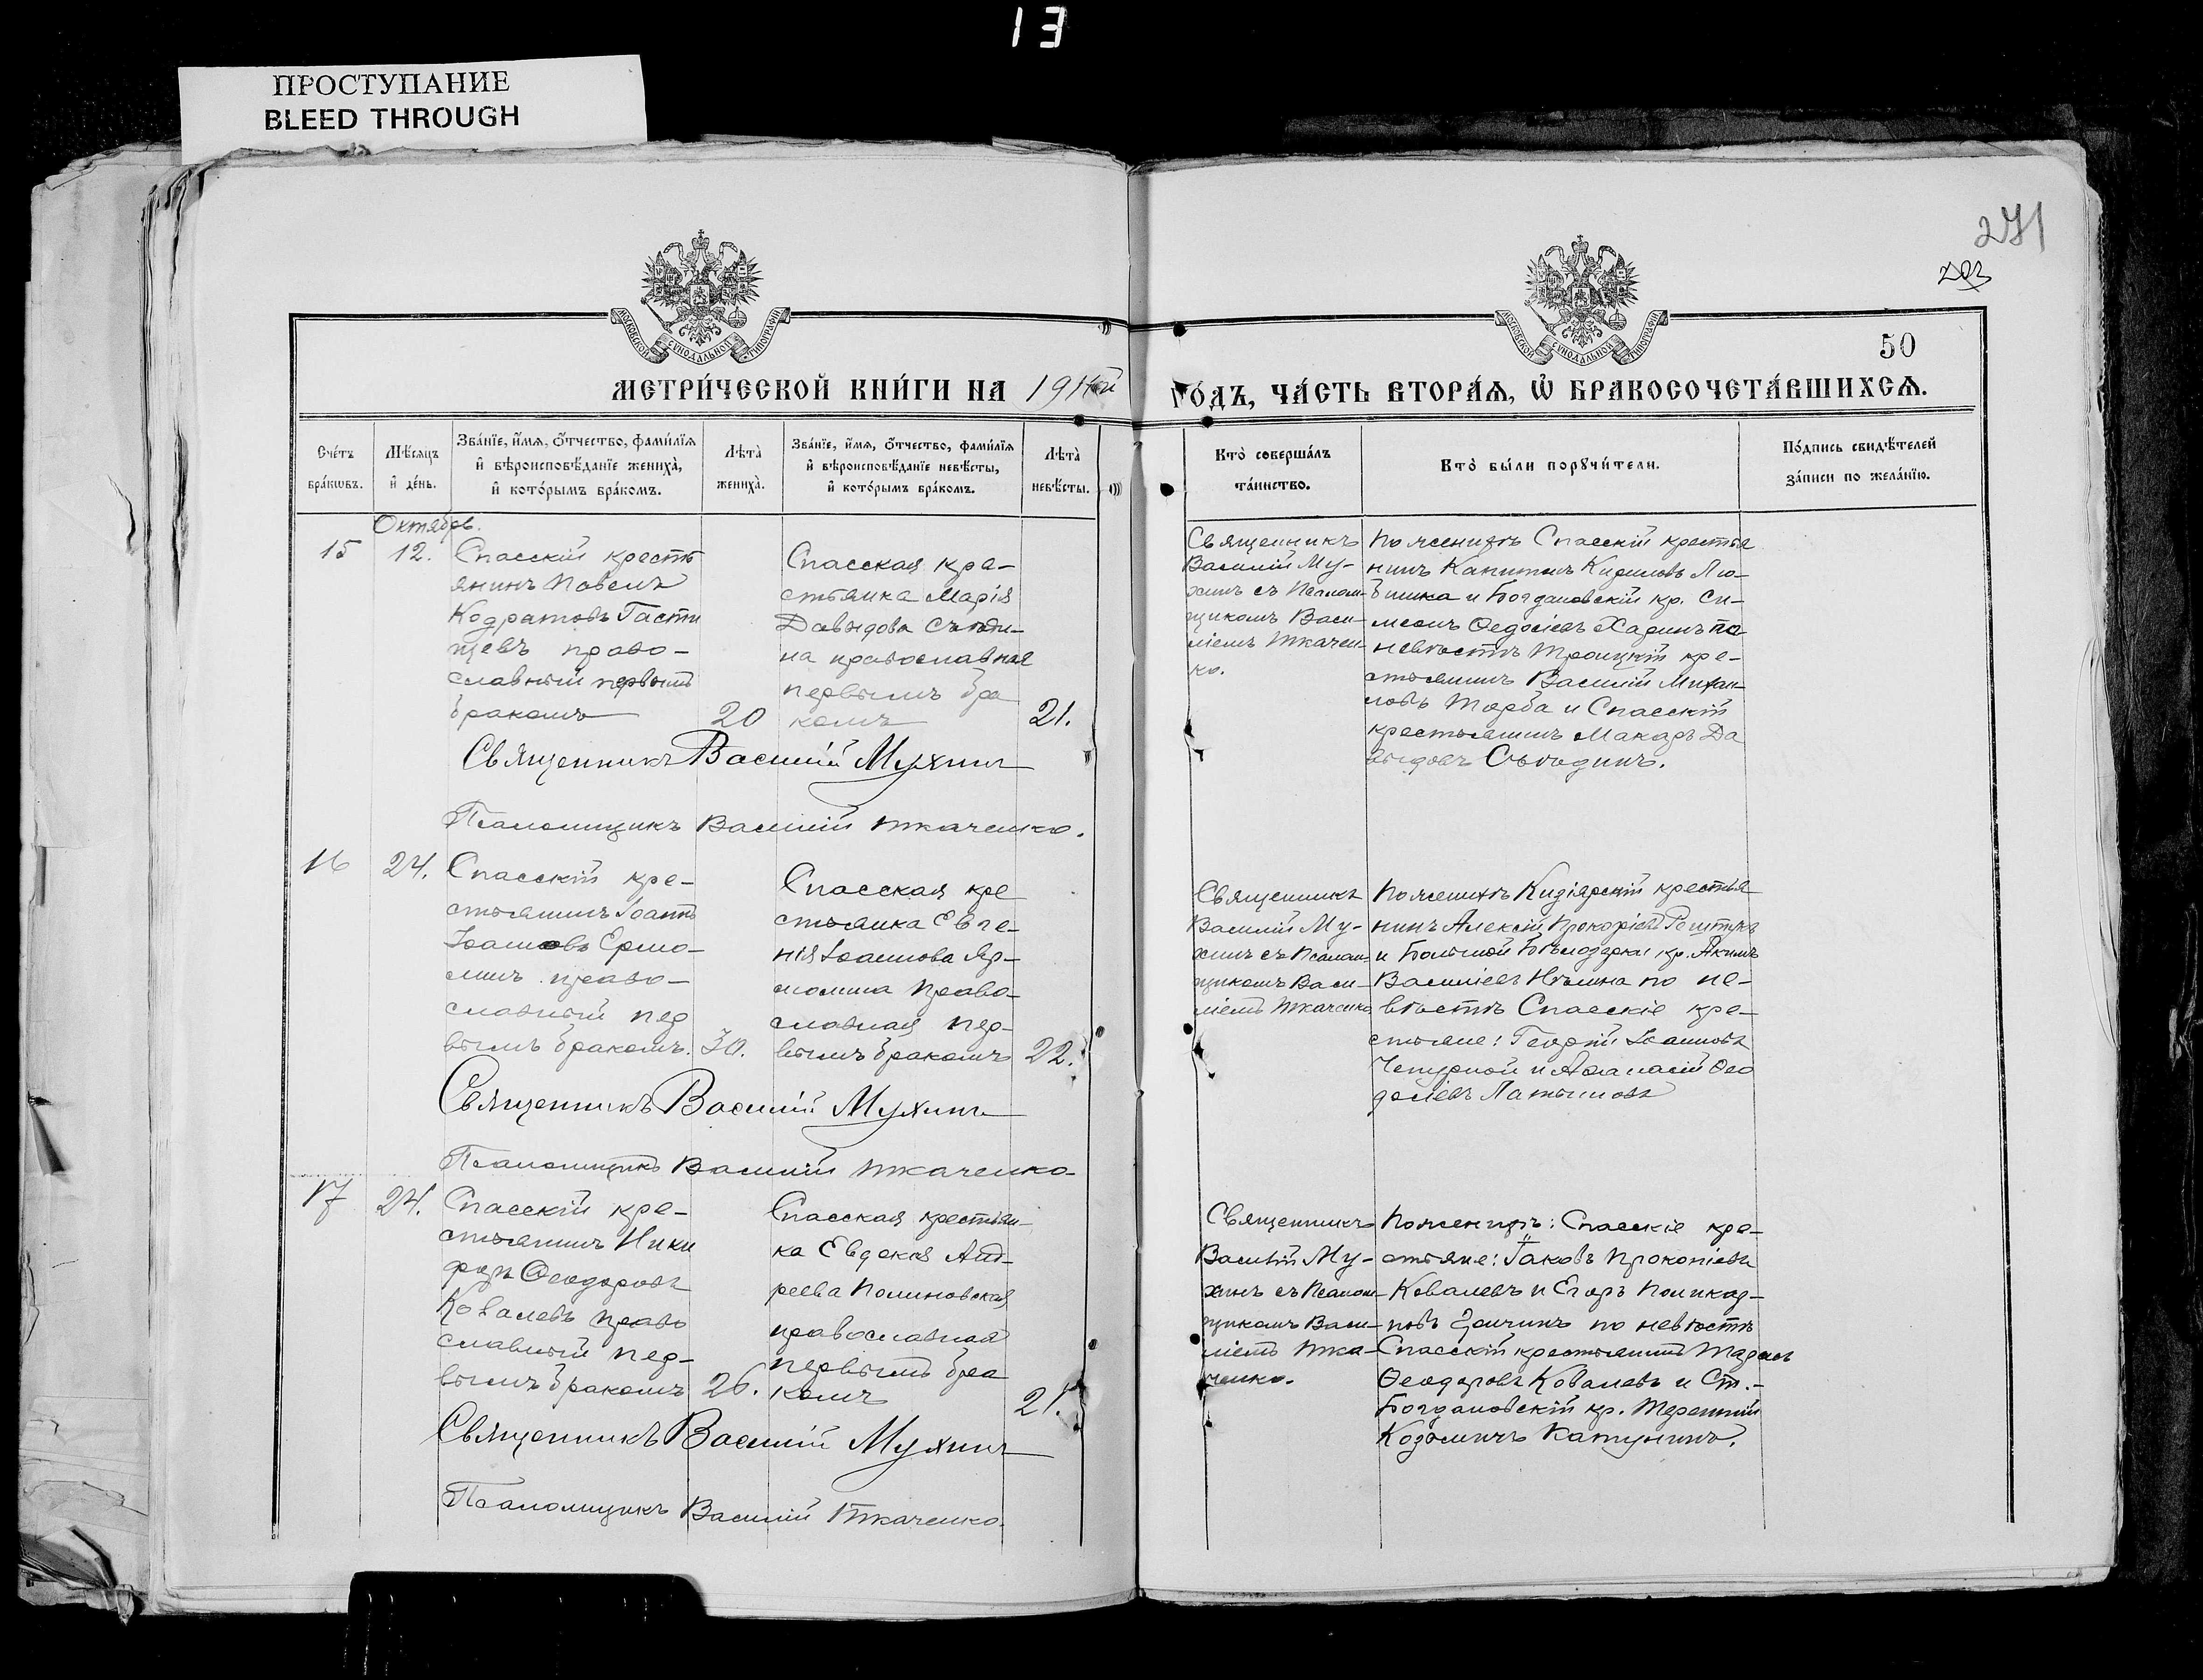 13
ПРОСТУПАНИЕ
BLEED THROUGH
271
МОСКОВСКОЙ СѴНОДАЛЬНОЙ ТИПОГРАФІИ
МОСКОВСКОЙ СѴНОДАЛЬНОЙ ТИПОГРАФІИ
50
МЕТРИ́ЧЕСКОЙ КНИ́ГИ НА 1911ый ГО́ДЪ, ЧА́СТЬ ВТОРА́Я, Ѿ БРАКОСОЧЕТА́ВШИХСЯ.
Сче́тъ
бра́кѡвъ.
Мѣ́сяцъ
и҆ де́нь.
Зва́нїе, и҆́мя, ѻ҆́тчество, фами́лїя
и҆ вѣроисповѣ́данїе жениха̀,
и҆ кото́рымъ бра́комъ.
Лѣта̀
жениха̀.
Зва́нїе, и҆́мя, ѻ҆́тчество, фами́лїя
и҆ вѣроисповѣ́данїе невѣ́сты,
и҆ кото́рымъ бра́комъ.
Лѣта̀
невѣ́сты.
Кто̀ соверша́лъ
та́инство.
Кто̀ бы́ли порꙋчи́тели.
По́дпись свидѣ́телей
за́писи по жела́нїю.
Октябрь.
15
12.
Спасскій кресть
янинъ Павелъ
Кодратовъ Гасти
щевъ право-
славный первымъ
бракомъ
20
Спасская кре-
стьянка Марія
Давыдова Съеди-
на православная
первымъ бра
комъ
21.
Священникъ
Василій Му-
хинъ съ Псалом-
щикомъ Васи-
ліемъ Ткачен-
ко.
По женихѣ Спасскій крестья
нинъ Капитонъ Кириловъ Лю-
бишка и Богдановскій кр. Си-
меонъ Ѳедосіевъ Харинъ по
невѣстѣ Троицкій кре-
стьянинъ Василій Михаи-
ловъ Торба и Спасскій
крестьянинъ Макаръ Да
выдовъ Съединъ.
Священникъ Василій Мухинъ
Псаломщикъ Василій Ткаченко.
16
24.
Спасскій кре-
стьянинъ Іоаннъ
Іоанновъ Ермо-
линъ право-
славный пер
вымъ бракомъ.
30.
Спасская кре
стьянка Евге-
нія Іоаннова Яр-
молина право-
славная пер-
вымъ бракомъ
22.
Священникъ
Василій Му-
хинъ съ Псалом-
щикомъ Васи-
ліемъ Ткаченко
По женихѣ Кизіярскій крестья
нинъ Алексій Прокофіевъ
и Большой Бѣлозерки кр. Акимъ
Василіевъ по не-
вѣстѣ Спасскіе кре-
стьяне: Георгій Іоанновъ
Чепурной и Аѳанасій Ѳео
досіевъ Латышовъ
Священникъ Василій Мухинъ
Псаломщикъ Василій Ткаченко
17
24.
Спасскій кре-
стьянинъ Ники
форъ Ѳеодоровъ
Ковалевъ право
славный пер-
вымъ бракомъ
26.
Спасская крестьян-
ка Евдокія Анд-
реева Полиновская
православная
первымъ бра
комъ
21.
Священникъ
Василій Му-
хинъ съ Псалом-
щикомъ Васи-
ліемъ Тка-
ченко.
По женихѣ: Спасскіе кре-
стьяне: Іаковъ Прокопіевъ
Ковалевъ и Егоръ Поликар-
повъ по невѣстѣ
Спасскій крестьянинъ Тарасъ
Ѳеодоровъ Ковалевъ и Ст.-
Богдановскій кр. Терентій
Козьминъ Катунинъ.
Священникъ Василій Мухинъ
Псаломщикъ Василій Ткаченко.